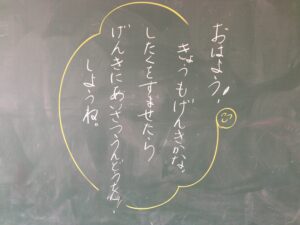 おはよう!
きょうもげんきかな。
したくをすませたら
げんきにあいさつうんどうだ!
しようね。